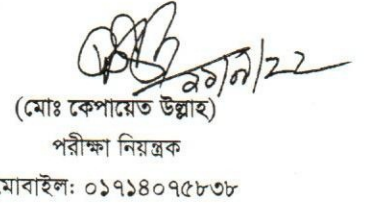 (মোঃ কেপায়েত উল্লাহ)
পরীক্ষা নিয়ন্ত্রক
মোবাইল: ০১৭১৪০৭৫৮৩৮